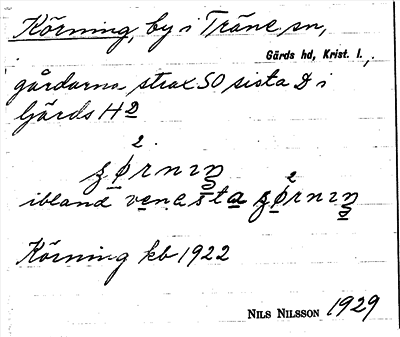 Körning, by i Träne sn,
Gärds hd, Krist. l.,
gårdarna strax SO sista D i
Gärds H 2
2
ʒørnıŋ
2
ibland vena sta ʒørnıŋ
Körning kb 1922
NILS NILSSON 1929